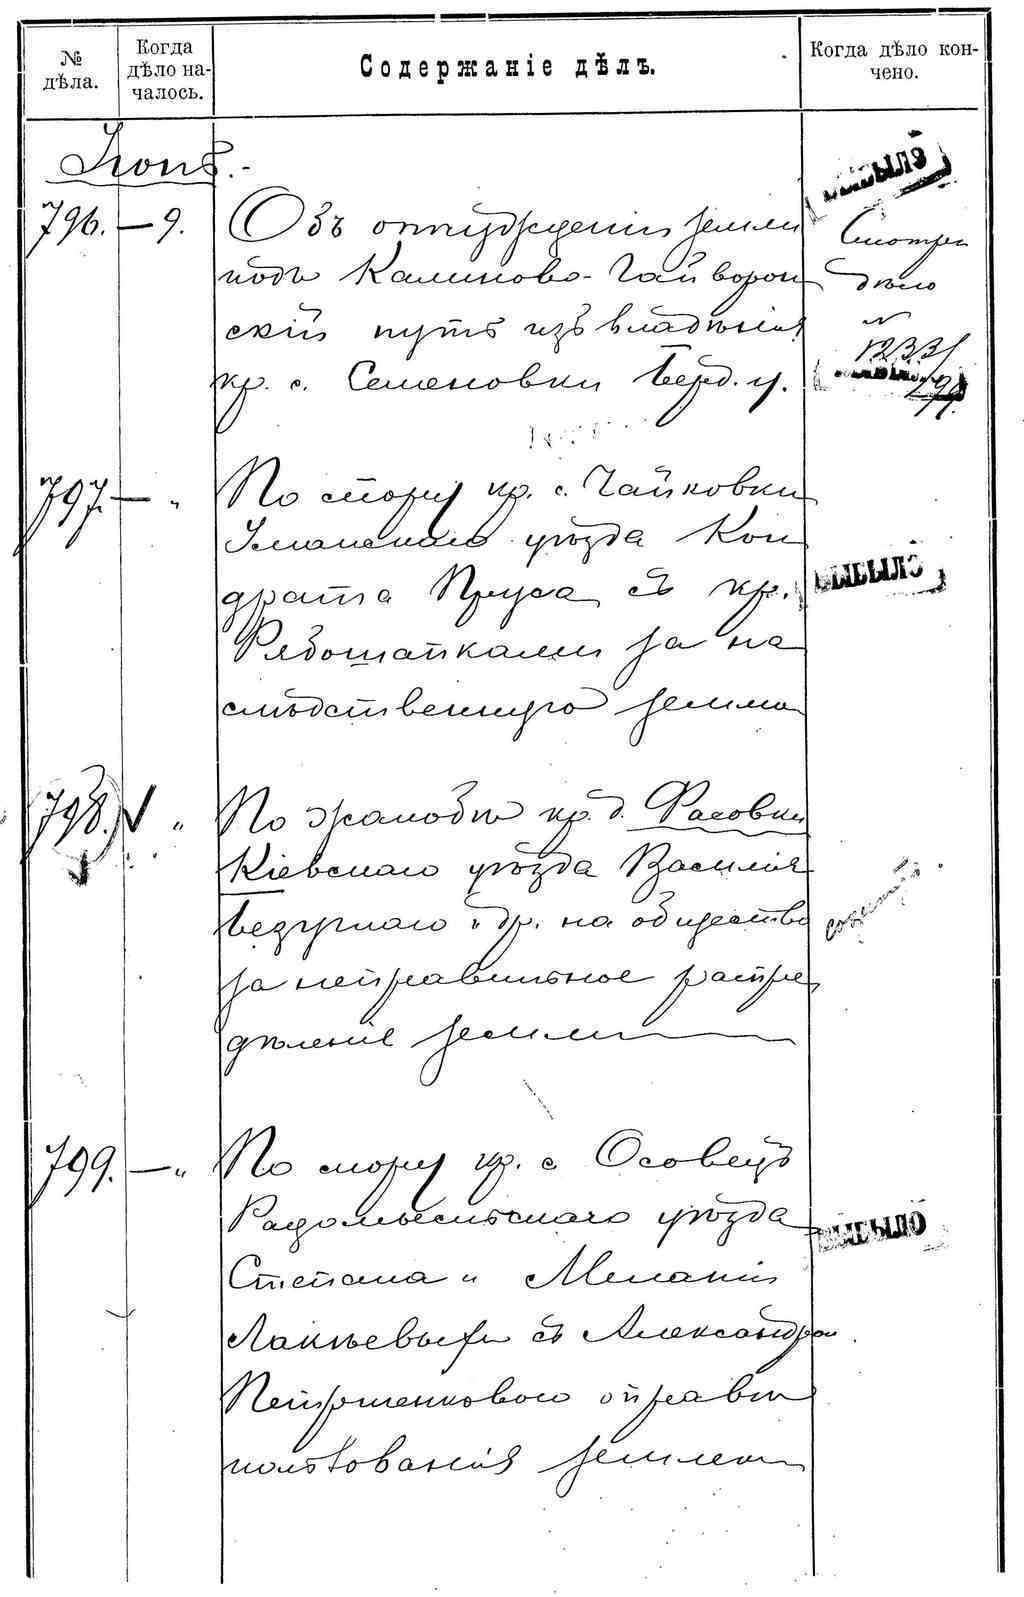 № дѣла.
Когда дѣло началось.
Содержаніе дѣлъ.
Когда дѣло кончено.
796. — 9.
Объ отчужденіи земли
подъ Калиново-Гайворон
скій путь изъ владѣнія
кр. с. Семеновки Берд. у.
ВЫБЫЛО
Смотри
дѣло
№
1233/
797. — "
По спору кр. с. Чайковки
Уманскаго уѣзда Кон
драта Пруса съ кр.
Рябошапками за на
слѣдственную землю
ВЫБЫЛО
798. "
По жалобѣ кр. д. Фасовки
Кіевскаго уѣзда Василія
Безуглаго и др. на общество
за неправильное распре
дѣленіе земли
799. — "
По спору кр. с. Осовецъ
Радомысльскаго уѣзда
Степана и Меланіи
съ Александрой
о правѣ
пользованія землею
ВЫБЫЛО